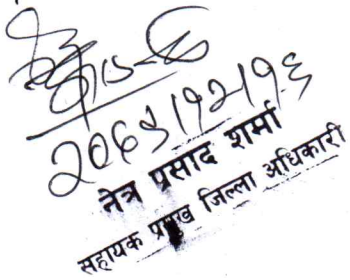 २०६९।१२।१६
नेत्र प्रसाद शर्मा
सहायक प्रमुख जिल्ला अधिकारी